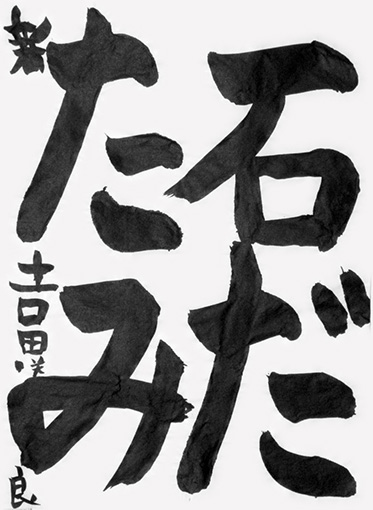 石だ
たみ
無 吉田咲良